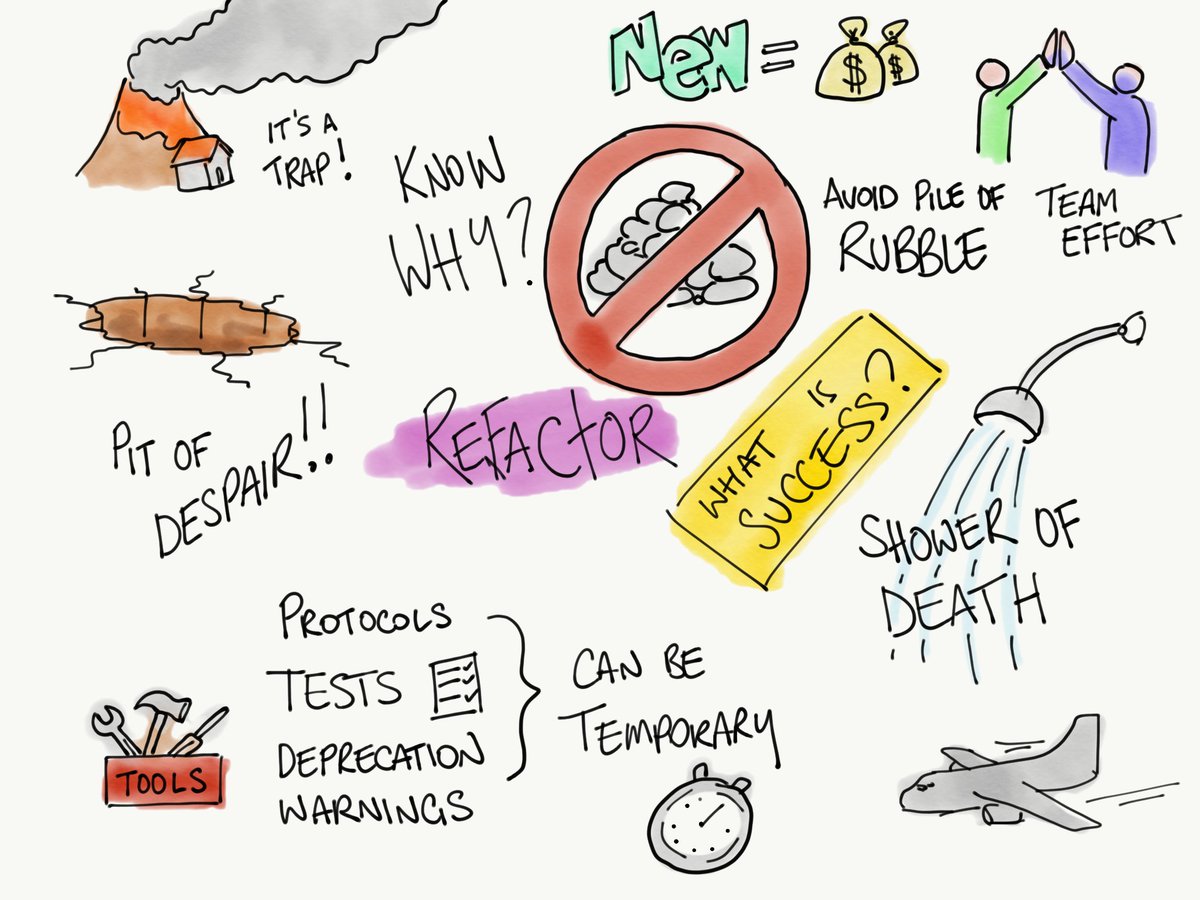 NEW = $ $
IT'S A
TRAP!
KNOW
WHY?
AVOID PILE OF
RUBBLE
TEAM
EFFORT
PIT OF
DESPAIR!!
REFACTOR
WHAT IS
SUCCESS?
SHOWER OF
DEATH
PROTOCOLS
TESTS
DEPRECATION
WARNINGS
CAN BE
TEMPORARY
TOOLS